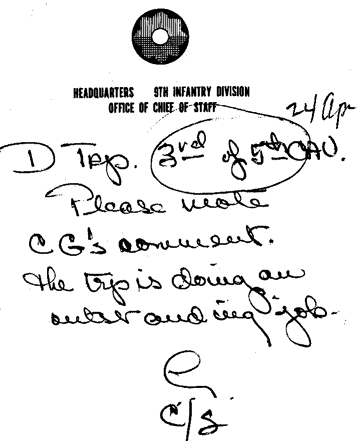 HEADQUARTERS 9TH INFANTRY DIVISION
OFFICE OF CHIEF OF STAFF
24 Apr
D Trp. 3rd of 5th CAV.
Please note
CG's comment.
the trp is doing an
outstanding job.
C/S